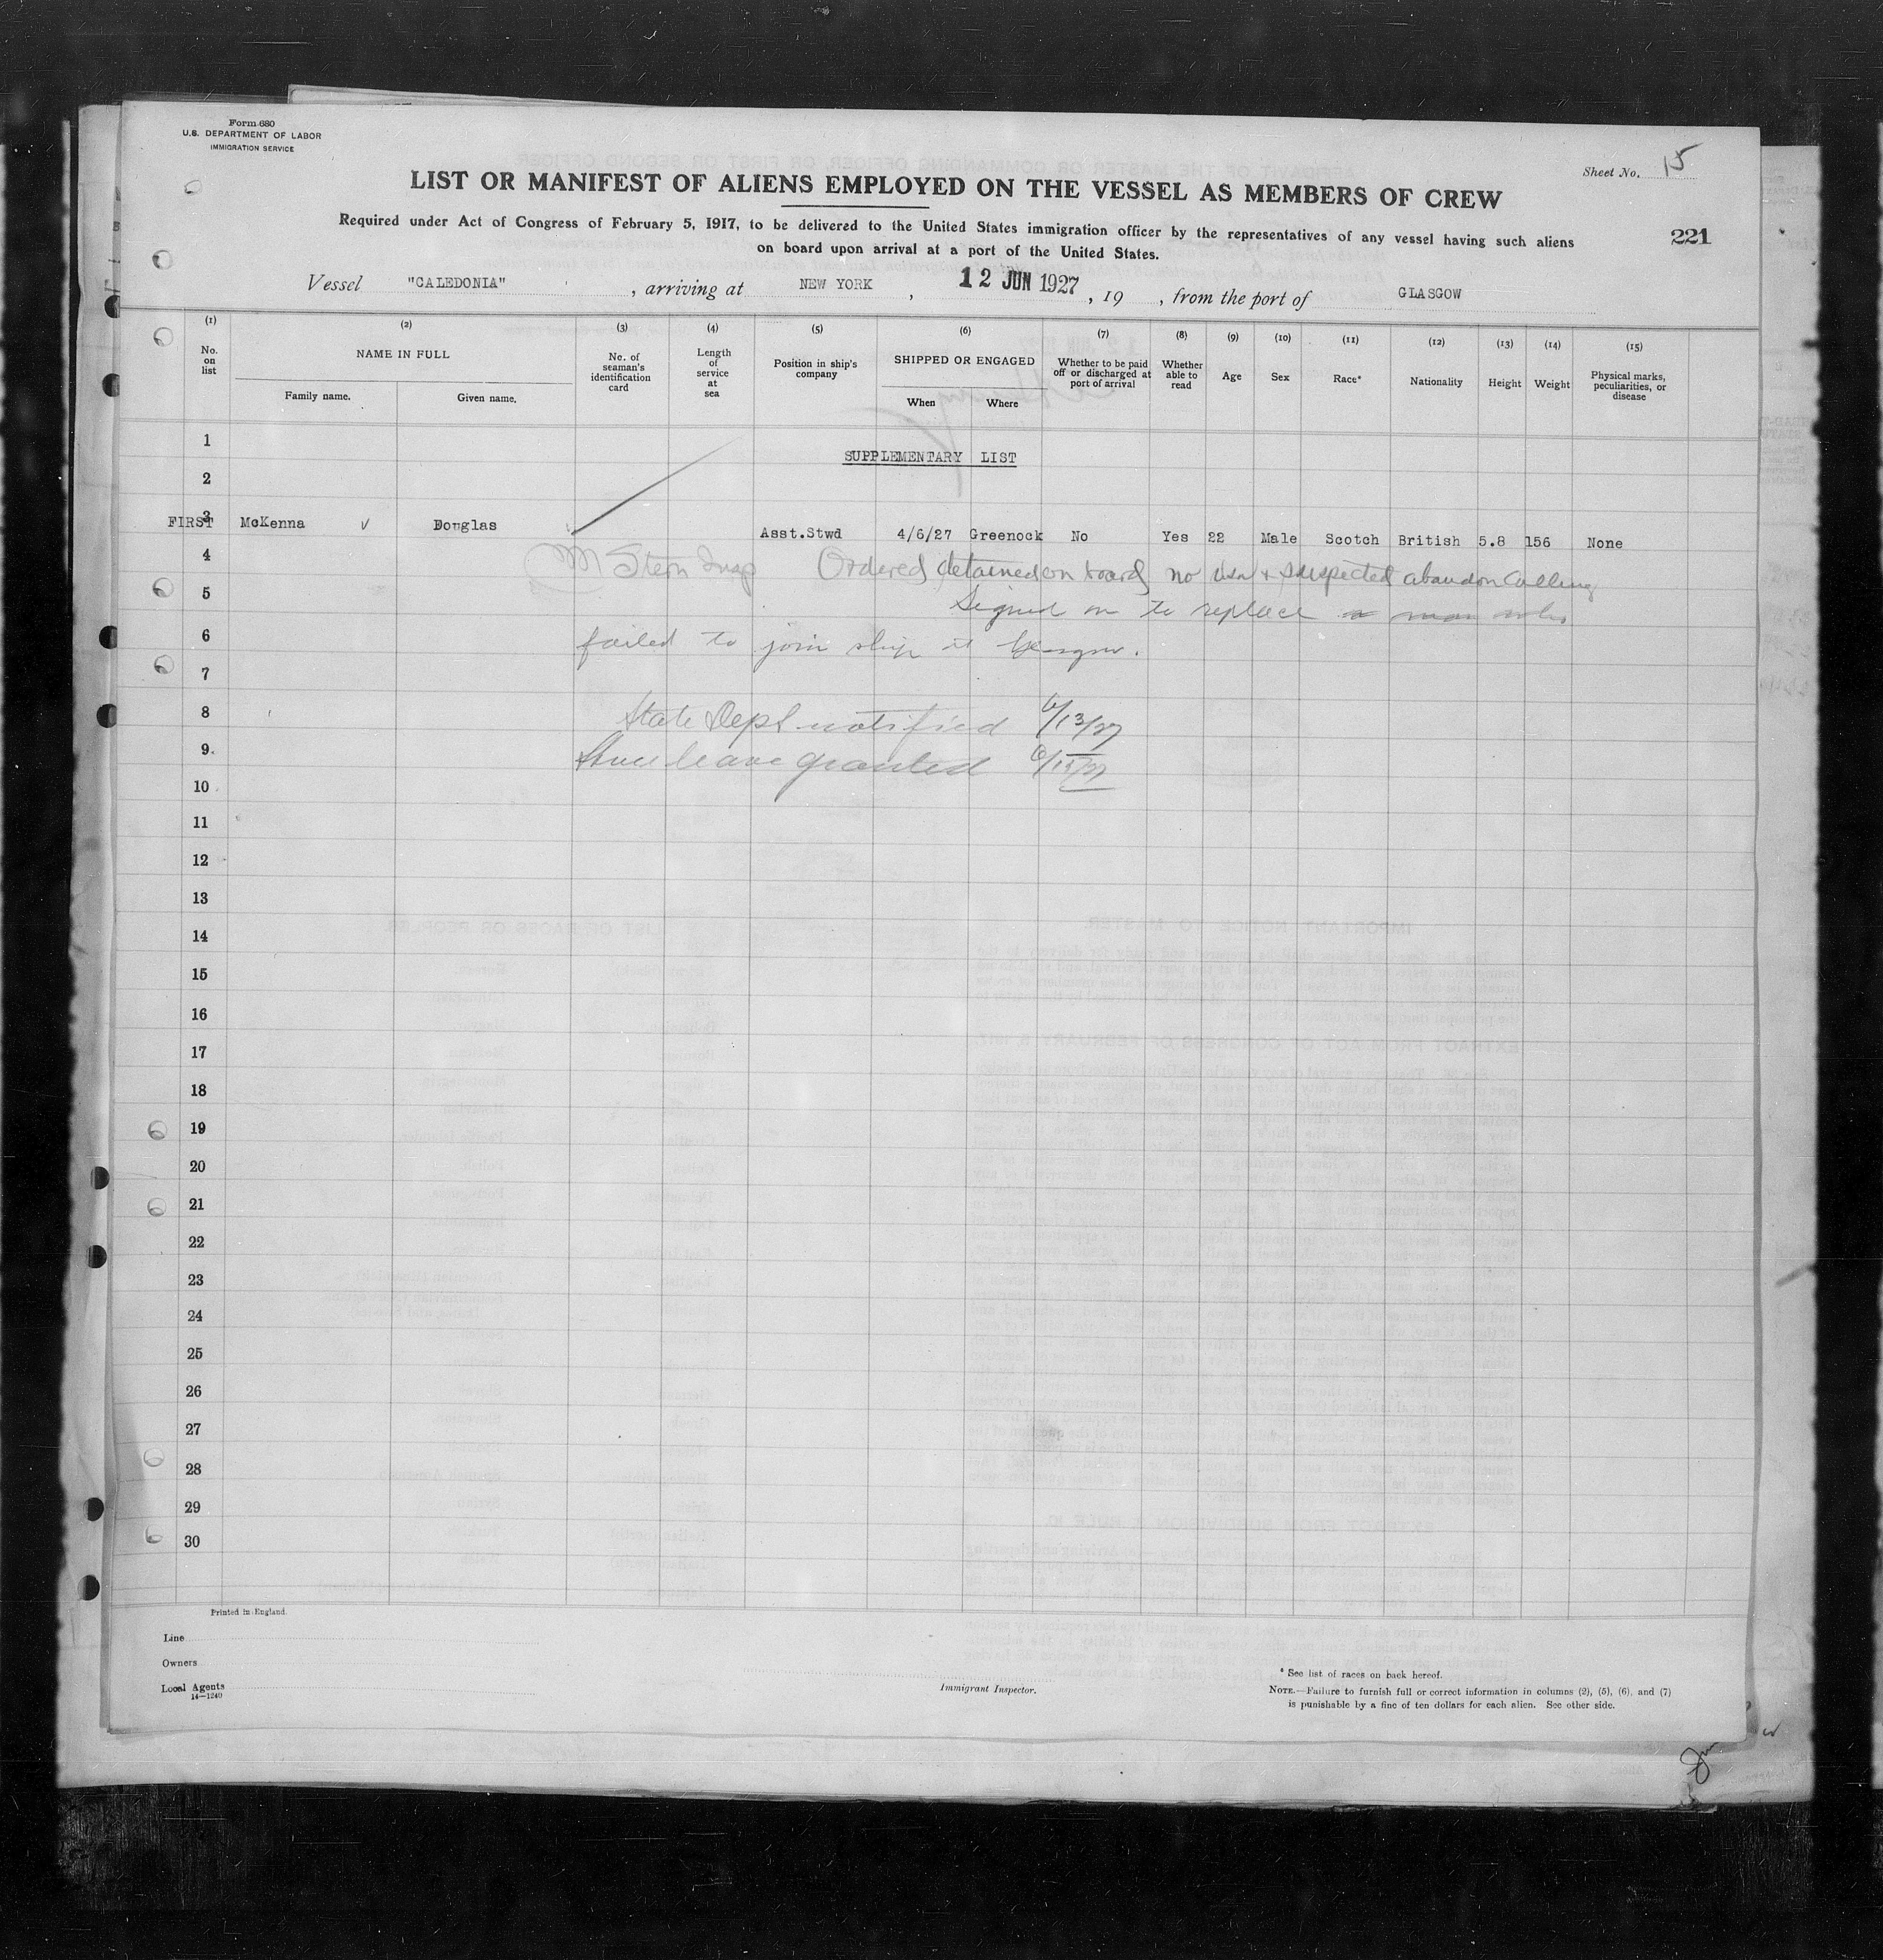 Form 680
U.S. DEPARTMENT OF LABOR
IMMIGRATION SERVICE
Sheet No. 15
LIST OR MANIFEST OF ALIENS EMPLOYED ON THE VESSEL AS MEMBERS OF CREW
221
Required under Act of Congress of February 5, 1917, to be delivered to the United States immigration officer by the representatives of any vessel having such aliens
on board upon arrival at a port of the United States.
Vessel "CALEDONIA", arriving at NEW YORK, 12 JUN 1927, 19 , from the port of GLASGOW
(1) (2) (3) (4) (5) (6) (7) (8) (9) (10) (11) (12) (13) (14) (15)
No. on list
NAME IN FULL
Family name. Given name.
No. of seaman's identification card
Length of service at sea
Position in ship's company
SHIPPED OR ENGAGED
When Where
Whether to be paid off or discharged at port of arrival
Whether able to read
Age
Sex
Race*
Nationality
Height
Weight
Physical marks, peculiarities, or disease
1
SUPPLEMENTARY LIST
2
3
FIRST McKenna Douglas Asst.Stwd 4/6/27 Greenock No Yes 22 Male Scotch British 5.8 156 None
4
M Stern Insp Ordered detained on board no visa & suspected abandon Calling
5
Signed on to replace a man who
6
failed to join ship at Glasgow.
7
8
State Dept notified 6/13/27
9
Shore leave granted 6/15/27
10
11
12
13
14
15
16
17
18
19
20
21
22
23
24
25
26
27
28
29
30
Printed in England.
Line
Owners
Local Agents
14—1240
Immigrant Inspector.
* See list of races on back hereof.
NOTE.—Failure to furnish full or correct information in columns (2), (5), (6), and (7)
is punishable by a fine of ten dollars for each alien. See other side.